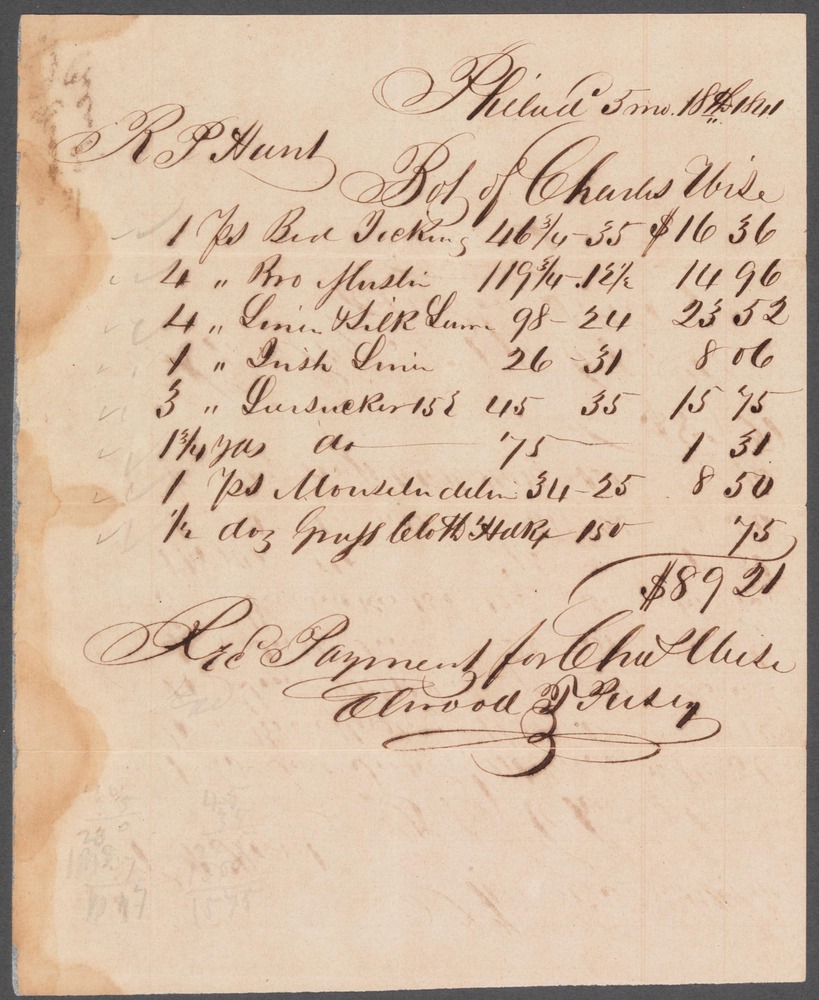 Philad 5 mo. 18th 1841
R P Hunt
Bot of Charles Wise
1 Ps Bed Ticking 46 3/4 - 35 $16 36
4 " Bro Muslin 119 3/4 - 12 1/2 14 96
4 " Linen & Silk Lum 98 - 24 23 52
1 " Irish Linen 26 - 31 8 06
3 " Seersucker 15 45 35 15 75
1 3/4 yds do 75 1 31
1 Ps Mouselndelin 34 - 25 8 50
1/2 doz Grass Cloth Hdkf 150 75
$89 21
Recd Payment for Chas Wise
Elwood T Pusey
45
35
1575